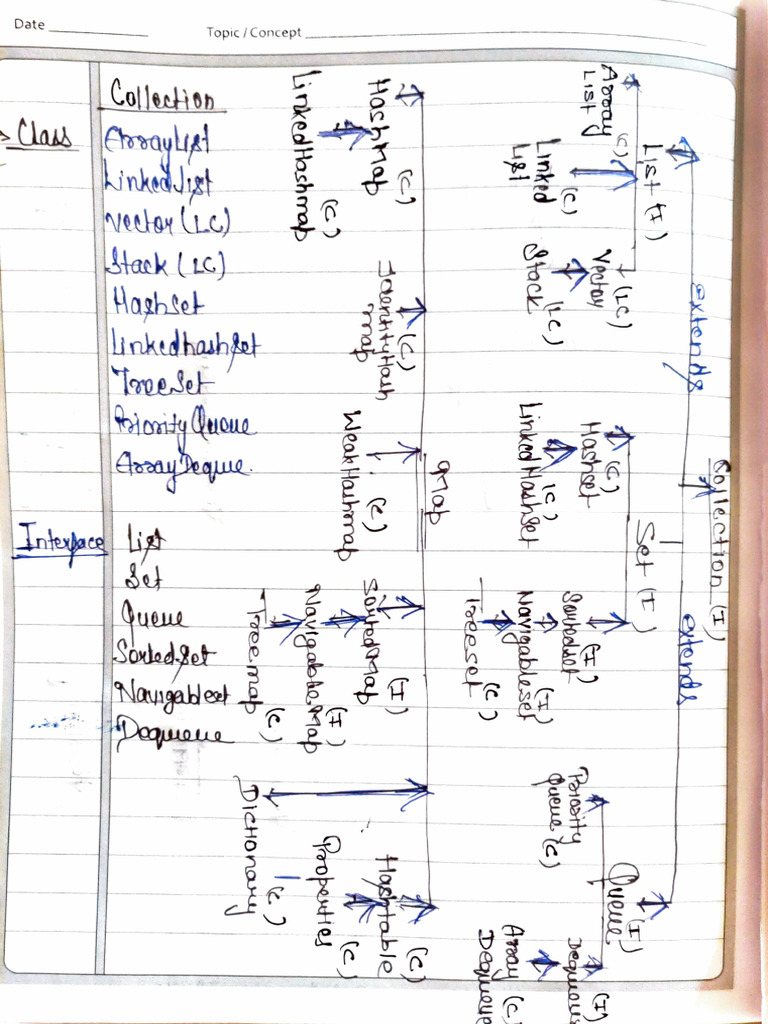 Date
Topic / Concept
Collection
Class
ArrayList
LinkedList
Vector (LC)
Stack (LC)
HashSet
LinkedhashSet
TreeSet
PriorityQueue
ArrayDeque.
Interface
List
Set
Queue
SortedSet
Navigableset
Dequeue
Collection (I)
extends
extends
List (I)
Array List (C)
Linked List (C)
Vector (LC)
Stack (LC)
Set (I)
Hashset (C)
LinkedHashSet (C)
Sortedset (I)
Navigableset (I)
Treeset (C)
Queue (I)
Priority Queue (C)
Array Dequeue (C)
Map
HashMap (C)
LinkedHashmap (C)
IdentityHash map (C)
WeakHashmap (C)
SortedMap (I)
NavigableMap (I)
Treemap (C)
Hashtable (C)
Properties (C)
Dictionary (C)